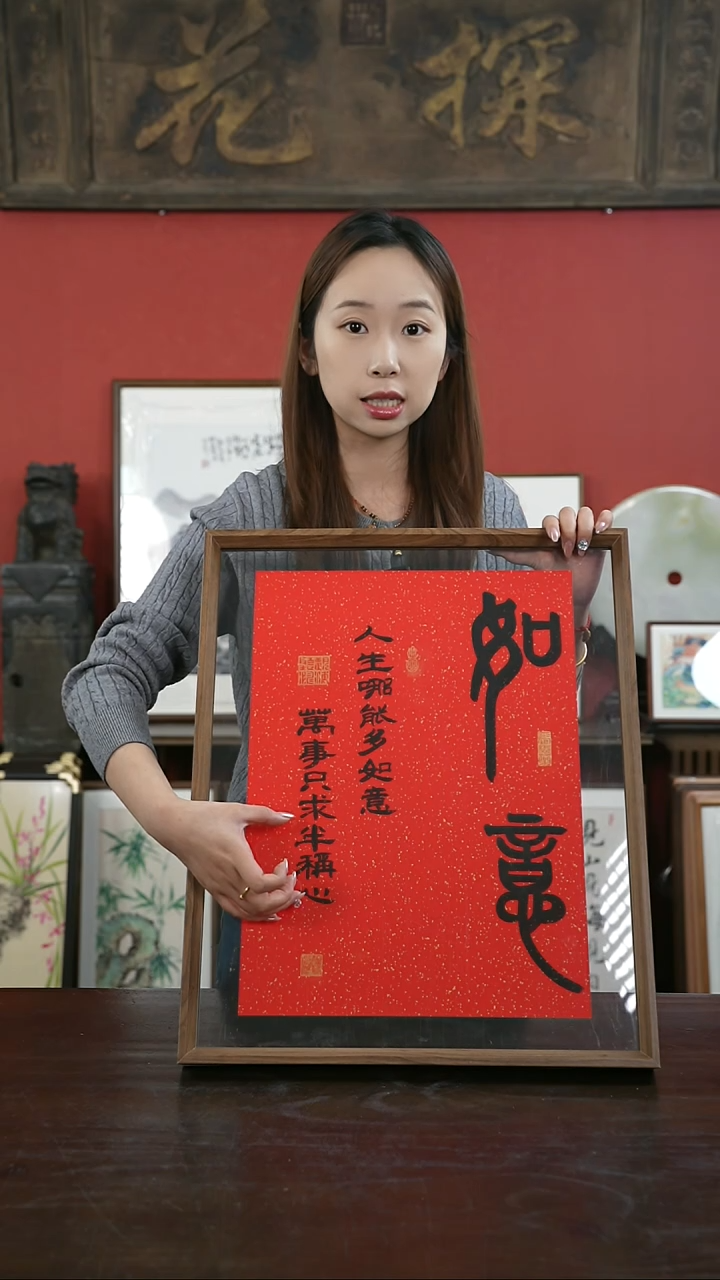 探花
如意
人生哪能多如意
萬事只求半稱心